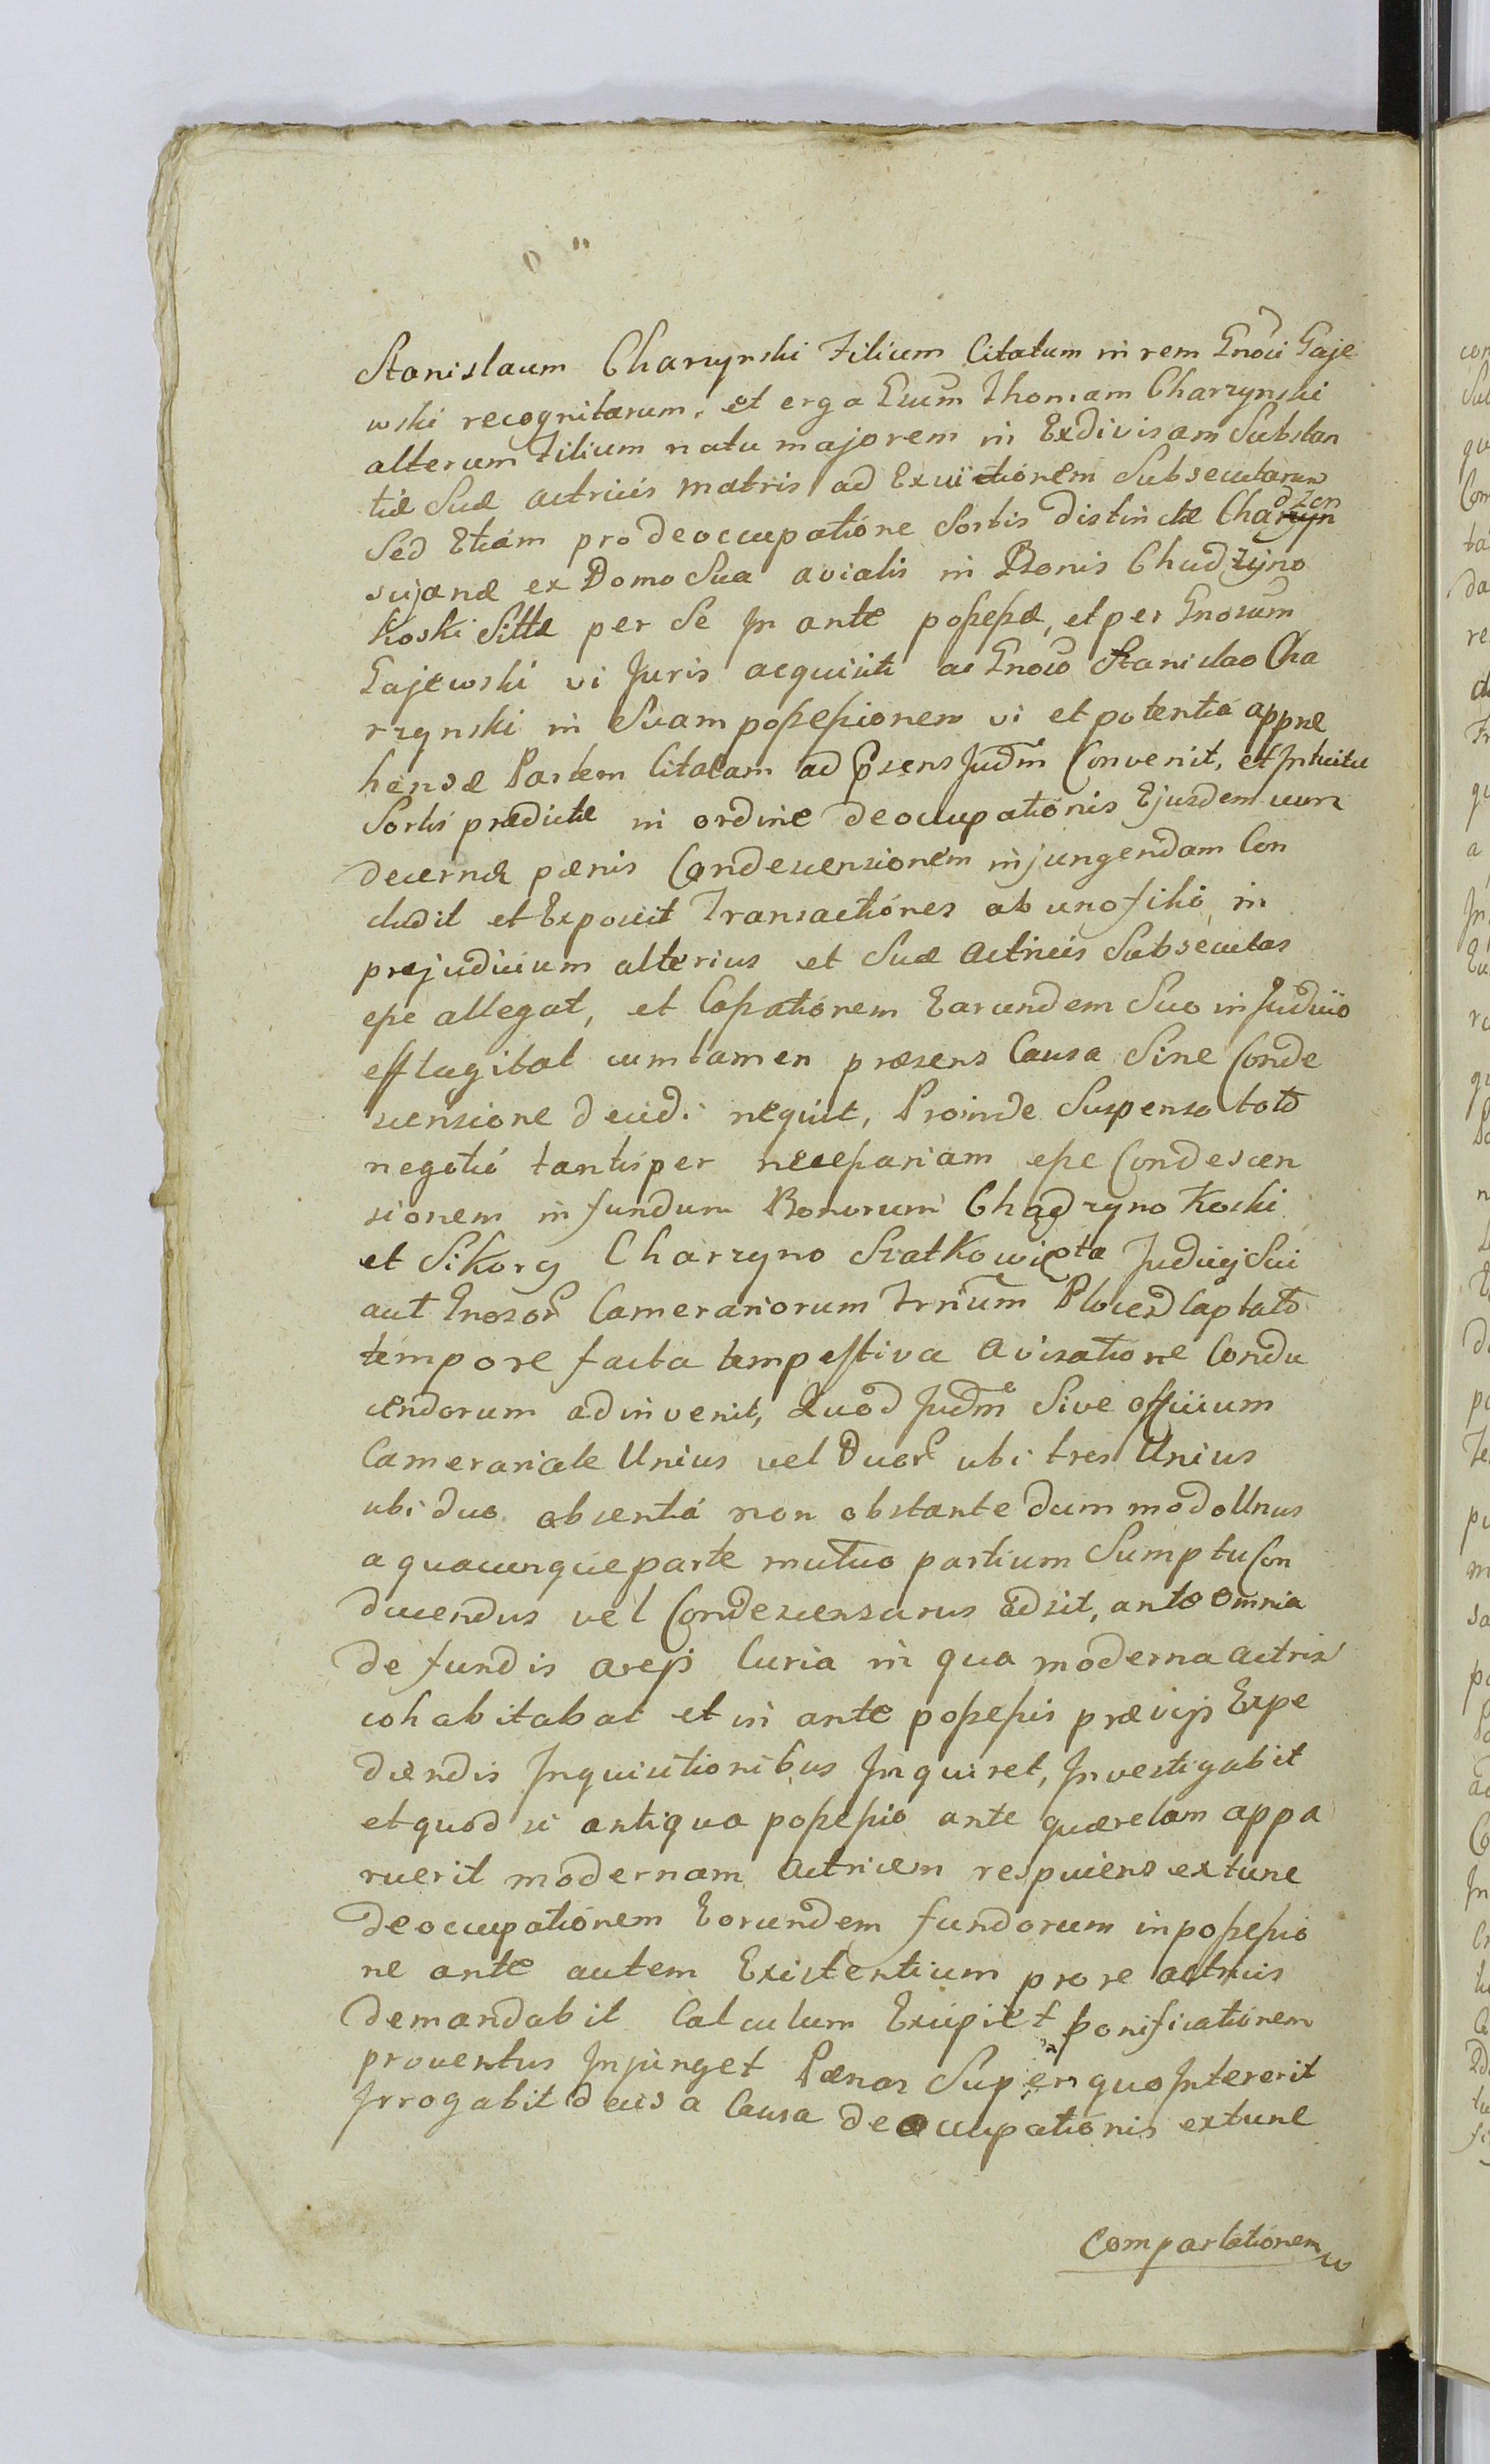 Stanislaum Charzynski Filium Citatum in rem Gnõsi Gaje
wski recognitarum, et erga Eum Thomam Charzynski
alterum Filium natu majorem in Exdivisam Substan
tiæ Suæ actricis Matris ad Exvictionem Subsecutarum
Sed Etiam pro deoccupatione Sortis distinctæ Charzyn
dzon
sujanæ ex Domo Sua avialis in Bonis Chudzyno
Koski Sittæ per Se In ante poßeßæ, et per Gnosum
Gajewski vi Juris acquisiti a Gnoso Stanislao Cha
rzynski in Suam poßeßionem vi et potentia appre
hensæ Partem Citatam ad Psens Judm Convenit, et Intuitu
Sortis prædictæ in ordine deoccupationis Ejusdem cum
decernen pænis Condescensionem injungendam Con
cludit et Exponit Transactiones ab uno filio in
præjudicium alterius et Suæ Actricis Subsecutas
eße allegat, et Caßationem Earundem Suo in Judicio
efflagitat cum tamen præsens Causa Sine Conde
scensione decidi nequit, Proinde Suspenso toto
negotio tantisper neceßariam eße Condescen
sionem in fundum Bonorum Chadzyno Koski
et Sikory Charzyno Sratkowięta Judicij Sui
aut Gnosor Camerariorum Trrium Plocen Captato
tempore facta tempestiva Avisatione Condu
cendorum adinvenit, Quod Judm Sive officium
Camerariale Unius vel Duor ubi tres Unius
ubi duo absentia non obstante dum modo Unus
a quacunque parte mutuo partium Sumptu Con
ducendus vel Condescensurus adsit, ante omnia
de fundis areis Curia in qua moderna actrix
cohabitabat et in ante poßeßis prævijs Expe
diendis Inquisitionibus Inquiret, Investigabit
et quod si antiqua poßeßio ante quærelam appa
ruerit modernam Actricem respiciens ex tunc
deoccupationem Eorundem fundorum in poßeßio
ne ante autem Existentium pro re actricis
demandabit Calculum Excipiet bonificationem
proventus Injunget Pænas Super quo Intererit
Irrogabit deis a Causa deoccupationis extunc
Compartationem